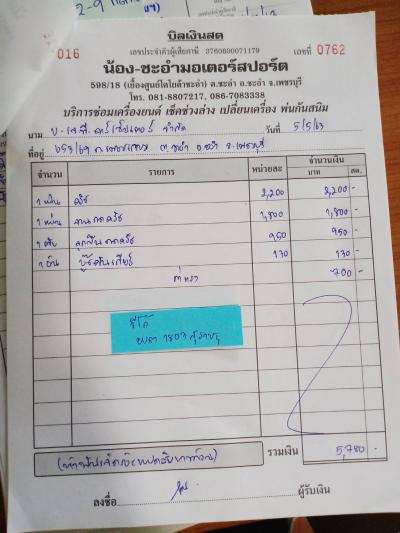 บิลเงินสด
016
เลขประจำตัวผู้เสียภาษี 3760600071179
เลขที่ 0762
น้อง-ชะอำมอเตอร์สปอร์ต
598/18 (เยื้องศูนย์โตโยต้าชะอำ) ต.ชะอำ อ.ชะอำ จ.เพชรบุรี
โทร. 081-8807217, 086-7083338
บริการซ่อมเครื่องยนต์ เช็คช่วงล่าง เปลี่ยนเครื่อง พ่นกันสนิม
นาม จำกัด วันที่ 5/5/63
ที่อยู่ 659/69 ถ.เพชรเกษม ต.ชะอำ อ.ชะอำ จ.เพชรบุรี
จำนวน รายการ หน่วยละ จำนวนเงิน
บาท สต.
1 แผ่น ครัช 2,200 2,200 -
1 แผ่น จานกดครัช 1,800 1,800 -
1 ตลับ ลูกปืนกดครัช 950 950 -
1 อัน บู๊ชคันเกียร์ 130 130 -
ค่าแรง 700 -
รีโว้
รวมเงิน 5,780 -
ลงชื่อ ผู้รับเงิน